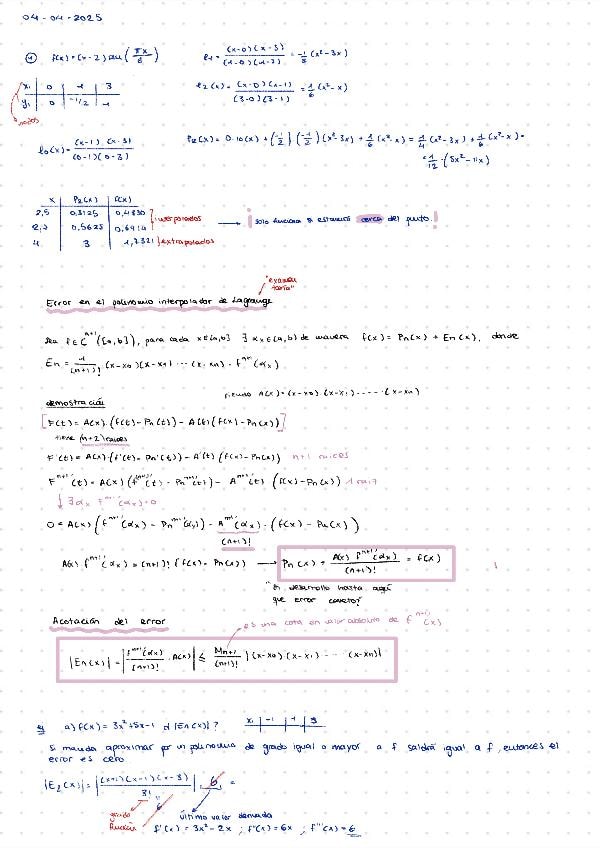 04-04-2025
① f(x) = (x-2) sen (πx/6)
l₁ = (x-0)(x-3) / (1-0)(1-3) = -1/2 (x²-3x)
xᵢ | 0 | 1 | 3
yᵢ | 0 | -1/2 | 1
nodos
l₂(x) = (x-0)(x-1) / (3-0)(3-1) = 1/6 (x²-x)
l₀(x) = (x-1)(x-3) / (0-1)(0-3)
P₂(x) = 0·l₀(x) + (-1/2)(-1/2)(x²-3x) + 1/6 (x²-x) = 1/4 (x²-3x) + 1/6 (x²-x) =
= 1/12 · (5x²-11x)
x | P₂(x) | f(x)
2,5 | 0,3125 | 0,4830
2,7 | 0,5625 | 0,6914
interpolados
→ ¡solo funciona si estamos cerca del punto!
4 | 3 | 1,7321
extrapolados
"examen teoría"
Error en el polinomio interpolador de Lagrange
Sea f∈Cⁿ⁺¹([a,b]), para cada x∈[a,b] ∃ αx∈(a,b) de manera f(x) = Pn(x) + En(x), donde
En = 1/(n+1)! (x-x₀)(x-x₁) ··· (x-xn) · fⁿ⁺¹⁾(αx)
siendo A(x) = (x-x₀)·(x-x₁)·····(x-xn)
demostración
[F(t) = A(x)·(f(t)-Pn(t)) - A(t)(f(x)-Pn(x))]
tiene (n+2) raíces
F'(t) = A(x)·(f'(t)-Pn'(t)) - A'(t)(f(x)-Pn(x)) n+1 raíces
Fⁿ⁺¹⁾(t) = A(x)(fⁿ⁺¹⁾(t) - Pnⁿ⁺¹⁾(t)) - Aⁿ⁺¹⁾(t) (f(x)-Pn(x)) 1 raíz
↓ ∃ αx Fⁿ⁺¹⁾(αx)=0
0 = A(x)(fⁿ⁺¹⁾(αx) - Pnⁿ⁺¹⁾(αx)) - Aⁿ⁺¹⁾(αx)·(f(x)-Pn(x))
(n+1)!
A(x) fⁿ⁺¹⁾(αx) = (n+1)! (f(x)-Pn(x)) → Pn(x) + A(x) fⁿ⁺¹⁾(αx) / (n+1)! = f(x)
desarrollo hasta aquí
que error cometo?
Acotación del error
es una cota en valor absoluto de fⁿ⁺¹⁾(x)
|En(x)| = |fⁿ⁺¹⁾(αx) / (n+1)! · A(x)| ≤ Mn+1 / (n+1)! |(x-x₀)(x-x₁) ··· (x-xn)|
a) f(x) = 3x²+5x-1 d |En(x)|? xᵢ | -1 | 1 | 3
Si manda aproximar por un polinomio de grado igual o mayor a f saldrá igual a f, entonces el
error es cero.
|E₂(x)| = |(x+1)(x-1)(x-3) / 3!| · 6 =
6
grado función
último valor derivada
f'(x) = 3x²-2x ; f''(x) = 6x ; f'''(x) = 6